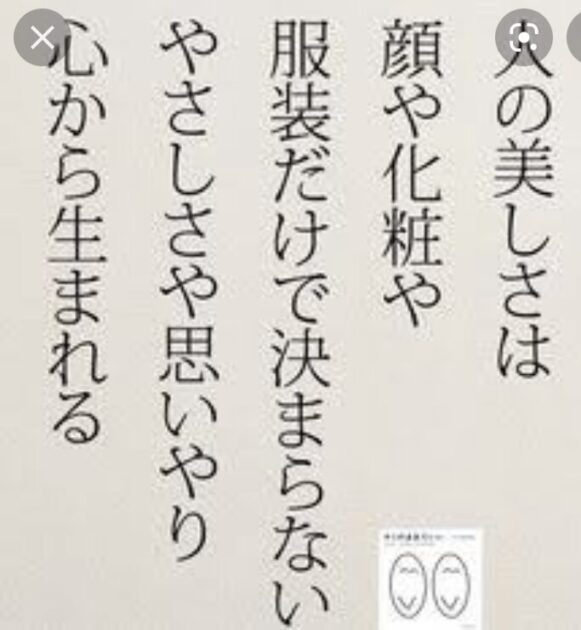 人の美しさは
顔や化粧や
服装だけで決まらない
やさしさや思いやり
心から生まれる